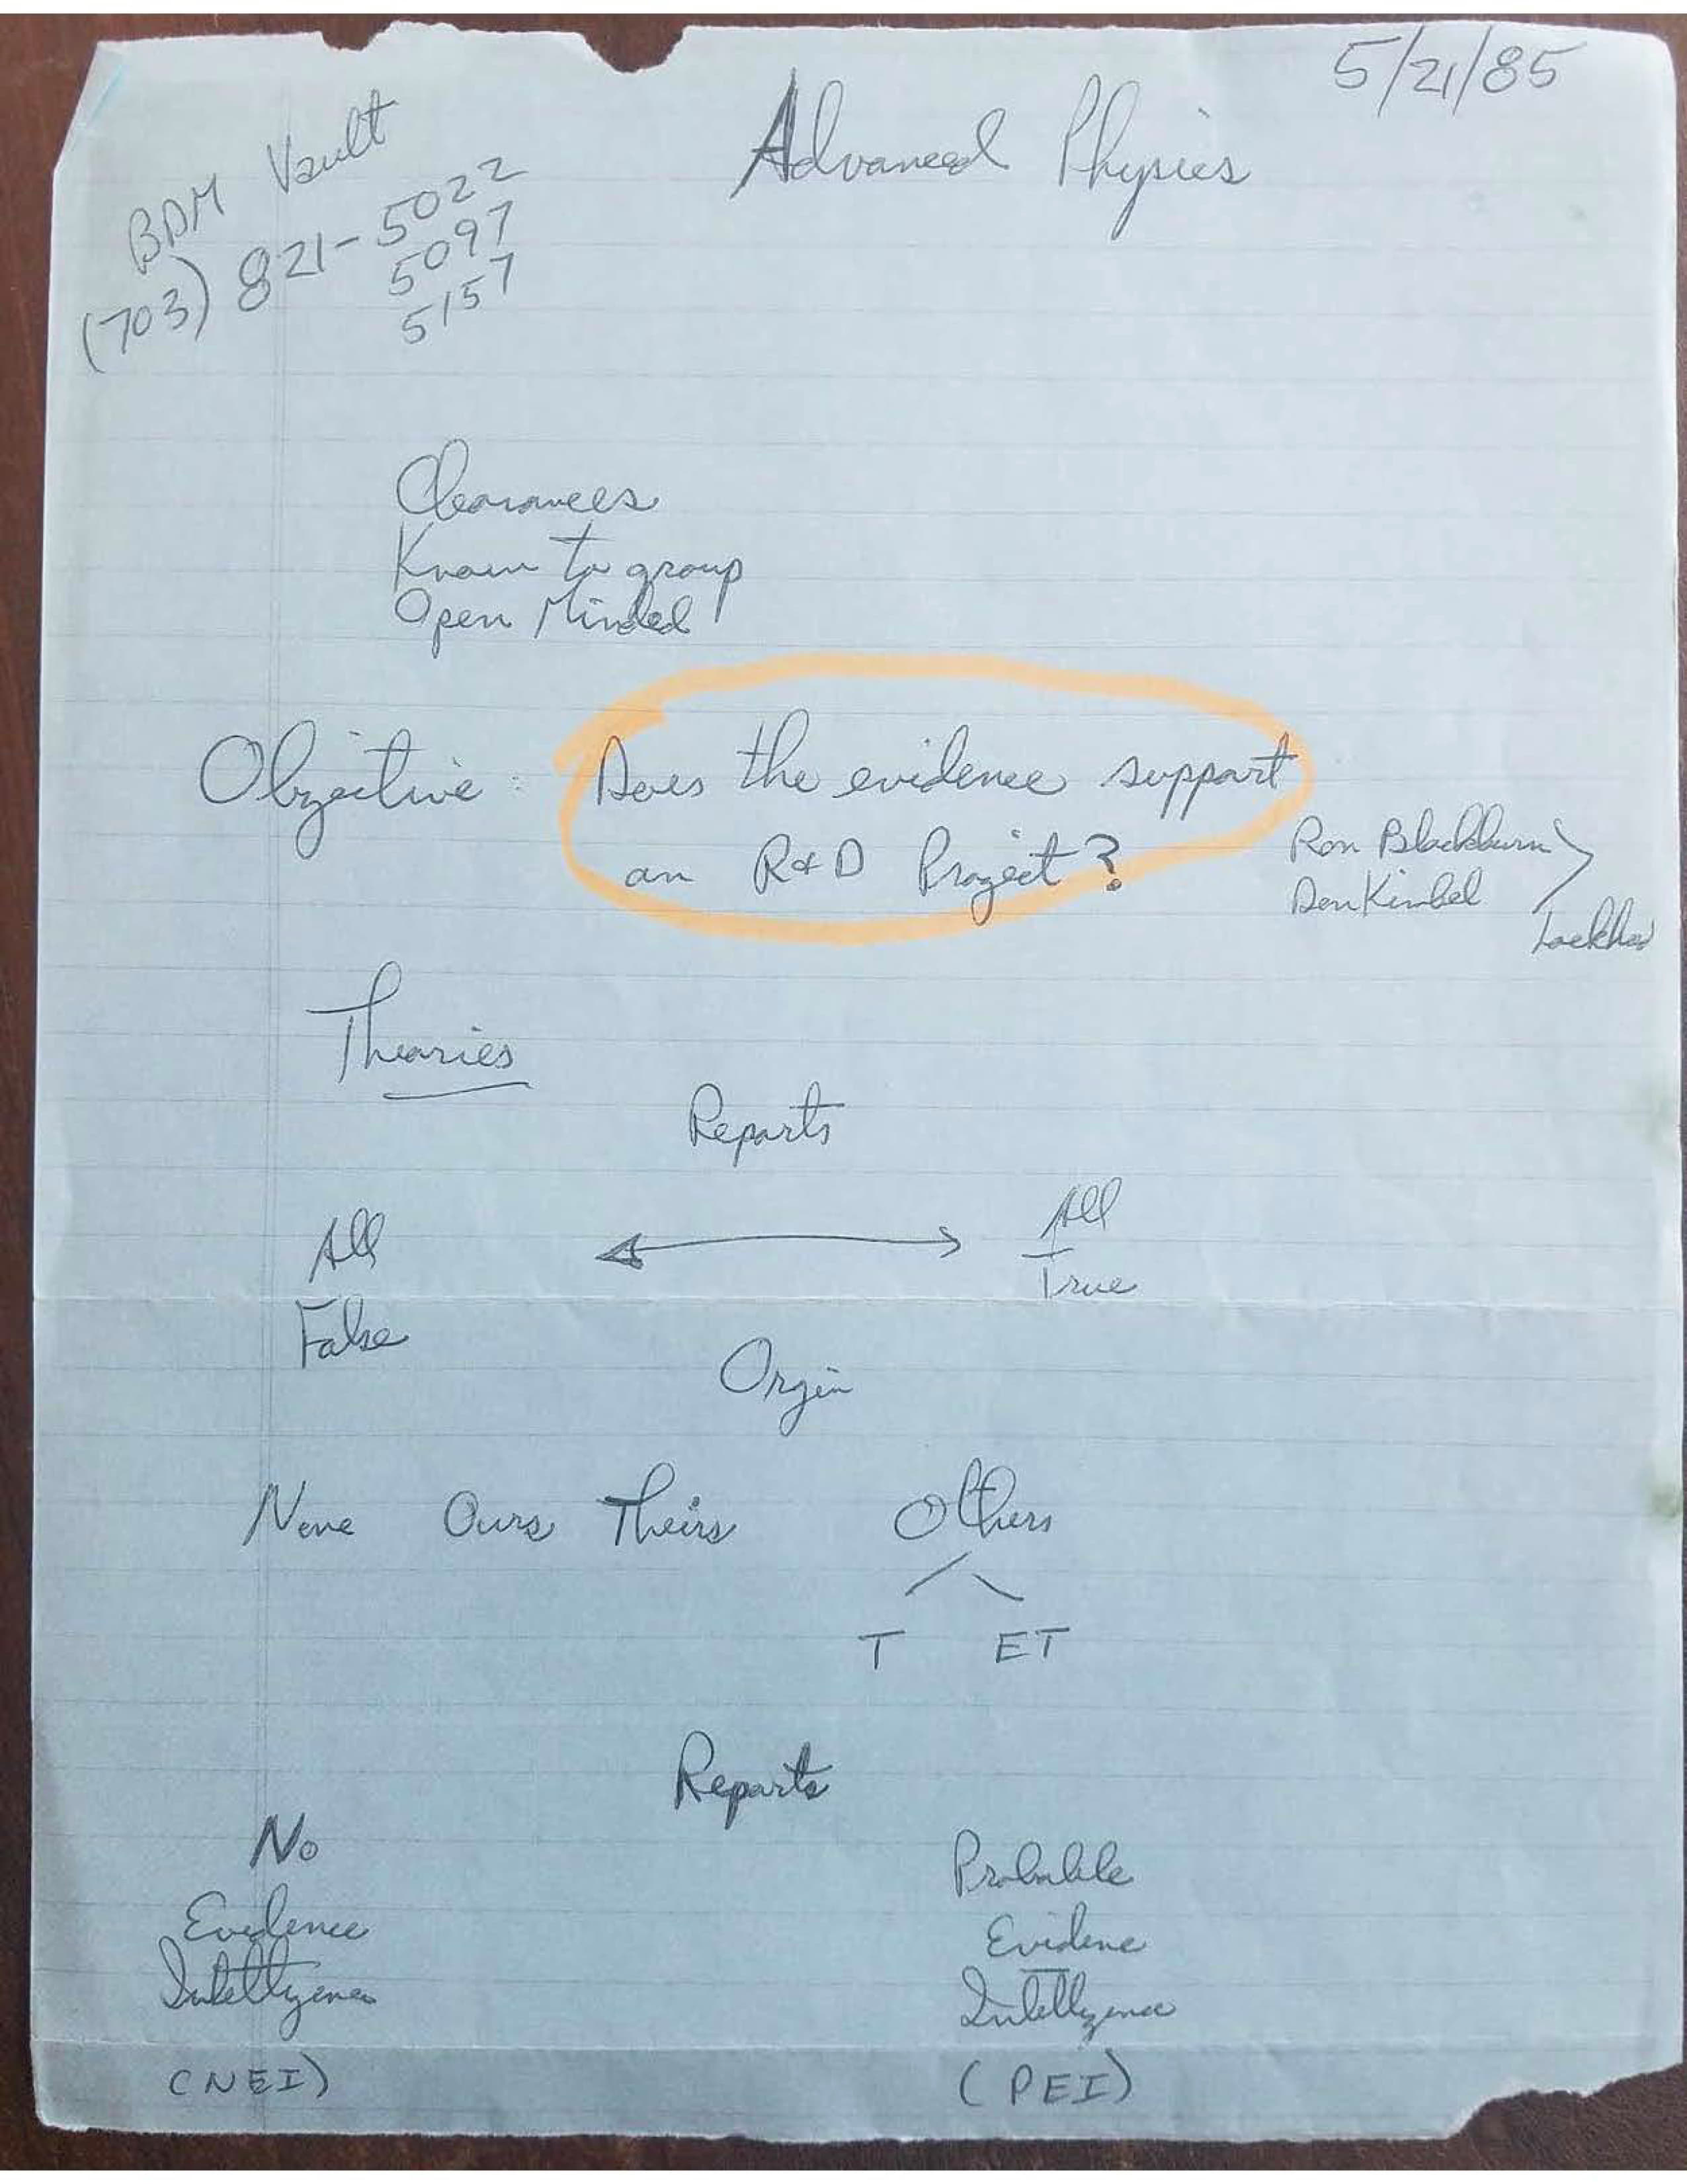 5/21/85
Advanced Physics
BDM Vault
(703) 821-5022
5097
5157
Clearances
Known to group
Open Minded
Objective: Does the evidence support
an R&D Project?
Ron Blackburn
Don Kimbel
Lockhee
Theories
Reports
All ↔ All
False True
Orgin
None Ours Theirs Others
T ET
Reports
No Probable
Evidence Evidene
Intelligence Intelligence
(NEI) (PEI)